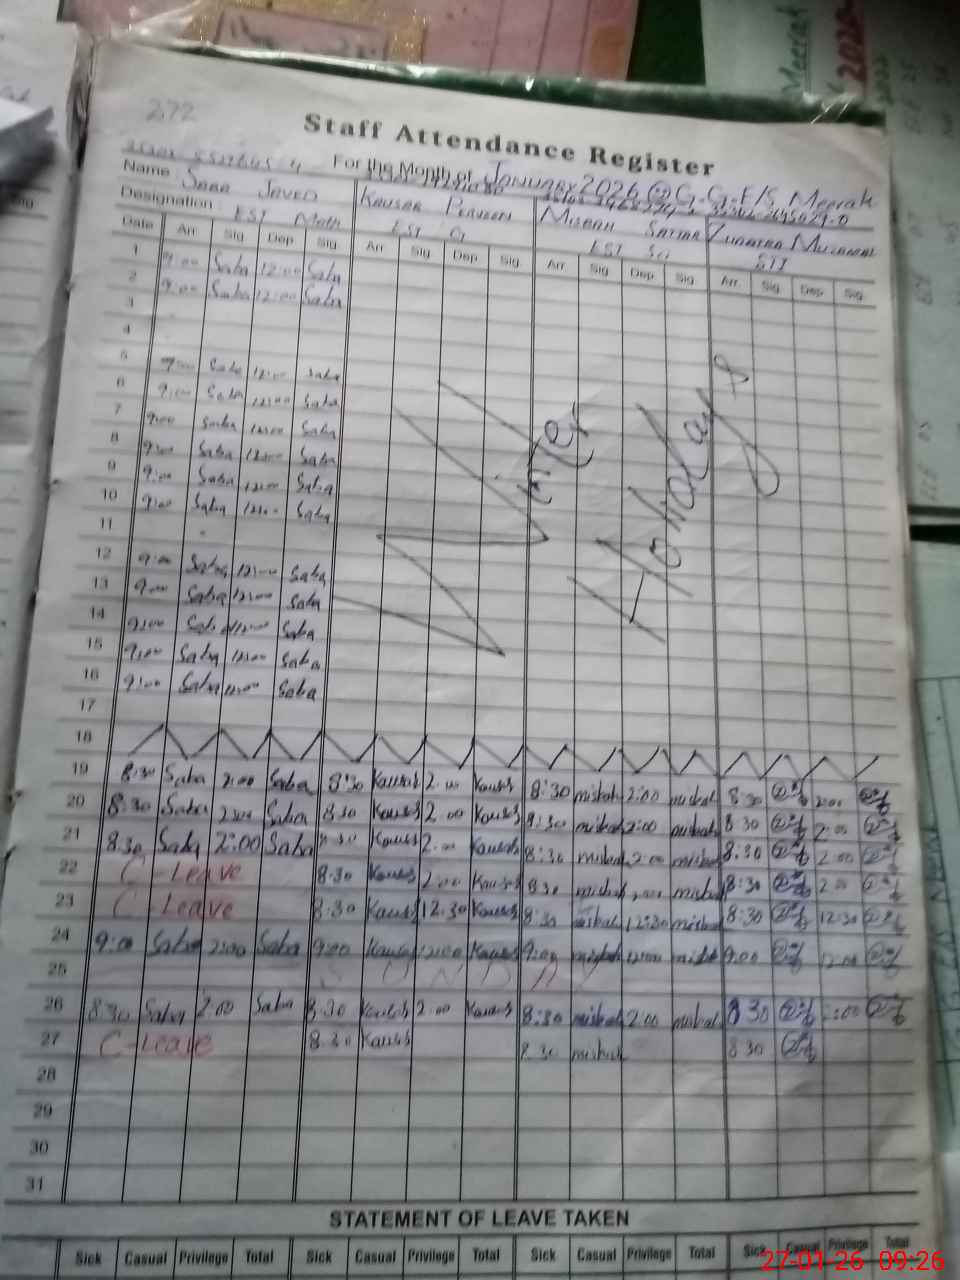 272
Staff Attendance Register
For the Month of January 2026 @ G.G.E/S Meerak
Name Saba Javed Kausar Perveen Misbah Sattar
Designation EST Math EST G EST Sci EST
Date Arr. Sig Dep Sig. Arr. Sig. Dep. Sig. Arr. Sig. Dep. Sig. Arr. Sig. Dep. Sig.
1 9:00 Saba 12:00 Saba
2 9:00 Saba 12:00 Saba
3
4
5 9:00 Saba 12:00 Saba
6 9:00 Saba 12:00 Saba
7 9:00 Saba 12:00 Saba
8 9:00 Saba 12:00 Saba
9 9:00 Saba 12:00 Saba
10 9:00 Saba 12:00 Saba
11
12 9:00 Saba 12:00 Saba
13 9:00 Saba 12:00 Saba
14 9:00 Saba 12:00 Saba
15 9:00 Saba 12:00 Saba
16 9:00 Saba 12:00 Saba
17
Winter Holidays
18
19 8:30 Saba 2:00 Saba 8:30 Kausar 2:00 Kausar 8:30 misbah 2:00 misbah 8:30 2:00
20 8:30 Saba 2:00 Saba 8:30 Kausar 2:00 Kausar 8:30 misbah 2:00 misbah 8:30 2:00
21 8:30 Saba 2:00 Saba 8:30 Kausar 2:00 Kausar 8:30 misbah 2:00 misbah 8:30 2:00
22 C-Leave 8:30 Kausar 2:00 Kausar 8:30 misbah 2:00 misbah 8:30 2:00
23 C-Leave 8:30 Kausar 12:30 Kausar 8:30 misbah 12:30 misbah 8:30 12:30
24 9:00 Saba 12:00 Saba 9:00 Kausar 12:00 Kausar 9:00 misbah 12:00 misbah 9:00 12:00
25 SUNDAY
26 8:30 Saba 2:00 Saba 8:30 Kausar 2:00 Kausar 8:30 misbah 2:00 misbah 8:30 2:00
27 C-Leave 8:30 Kausar 8:30 misbah 8:30
28
29
30
31
STATEMENT OF LEAVE TAKEN
Sick Casual Privilege Total Sick Casual Privilege Total Sick Casual Privilege Total Sick Casual Privilege Total
27-01-26 09:26